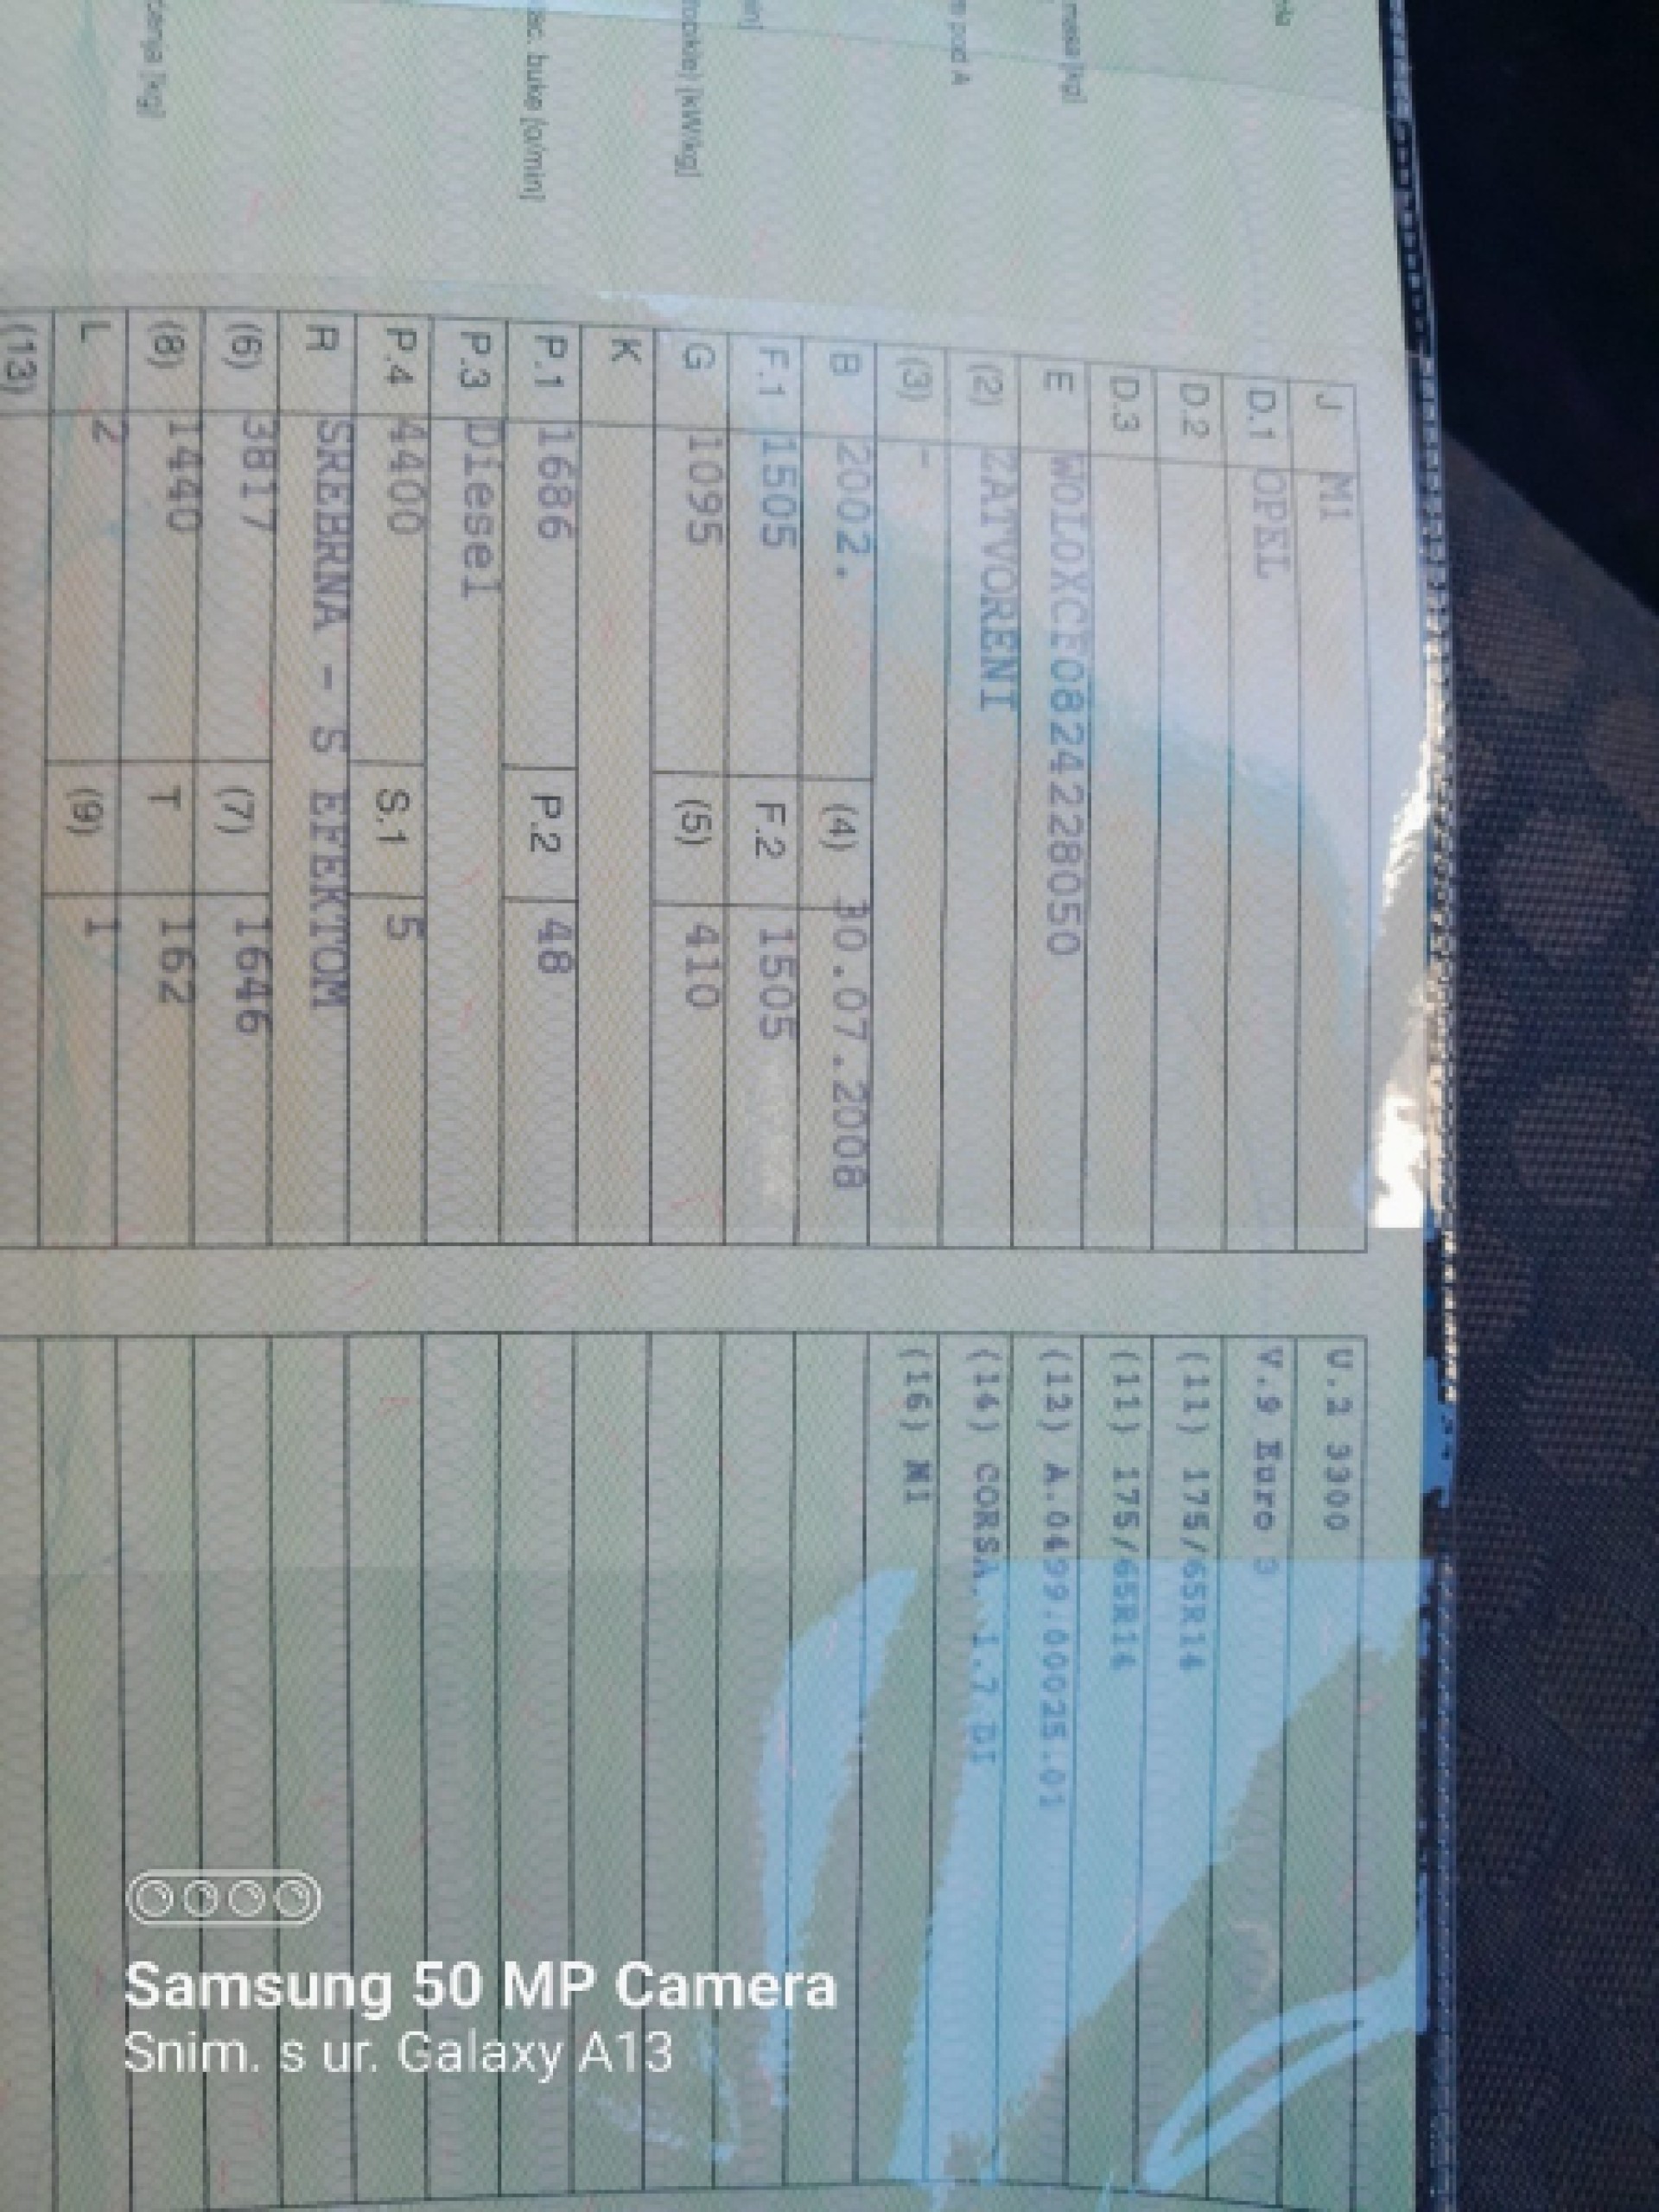 J M1
D.1 OPEL
D.2
D.3
E W0L0XCF0824228050
(2) ZATVORENI
(3) -
B 2002. (4) 30.07.2008
F.1 1505 F.2 1505
G 1095 (5) 410
K
P.1 1686 P.2 48
P.3 Diesel
P.4 4400 S.1 5
R SREBRNA - S EFEKTOM
(6) 3817 (7) 1646
(8) 1440 T 162
L 2 (9) 1
(13)
masa [kg]
e pod A
[kW/kg]
buke [o/min]
[kg]
U.2 3300
V.9 Euro 3
(11) 175/65R14
(11) 175/65R14
(12) A.0499.00025.01
(14) CORSA 1.7 DI
(16) M1
Samsung 50 MP Camera
Snim. s ur. Galaxy A13